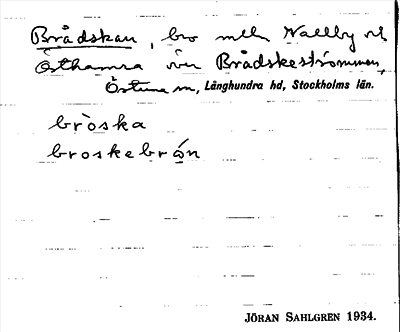 Brådskan, bro mell. Wallby och
Östhamra över Brådskeströmmen,
Östuna sn, Långhundra hd, Stockholms län.
bròska
broskebrón
JÖRAN SAHLGREN 1934.